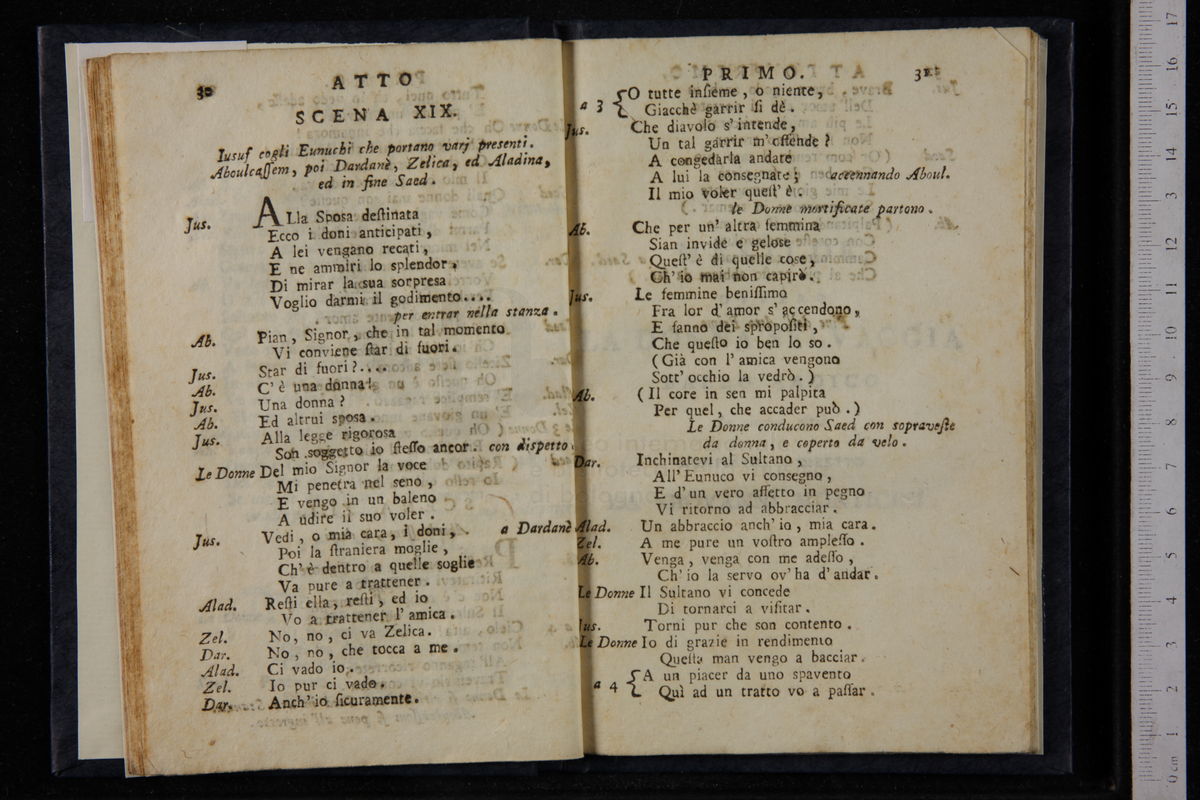 30
ATTO
SCENA XIX.
Iusuf cogli Eunuchi che portano varj presenti.
Aboulcaſſem, poi Dardanè, Zelica, ed Aladina,
ed in fine Saed.
Jus. ALla Sposa deſtinata
Ecco i doni anticipati,
A lei vengano recati,
E ne ammiri lo splendor.
Di mirar la sua sorpresa
Voglio darmi il godimento....
per entrar nella stanza.
Ab. Pian, Signor, che in tal momento
Vi conviene ſtar di fuori.
Jus. Star di fuori?....
Ab. C' è una donna!
Jus. Una donna?
Ab. Ed altrui sposa.
Jus. Alla legge rigorosa
Son soggetto io ſteſſo ancor. con dispetto.
Le Donne Del mio Signor la voce
Mi penetra nel seno,
E vengo in un baleno
A udire il suo voler.
Jus. Vedi, o mia cara, i doni, a Dardanè
Poi la ſtraniera moglie,
Ch' è dentro a quelle soglie
Va pure a trattener.
Alad. Reſti ella, reſti, ed io
Vo a trattener l' amica.
Zel. No, no, ci va Zelica.
Dar. No, no, che tocca a me.
Alad. Ci vado io.
Zel. Io pur ci vado.
Dar. Anch' io ſicuramente.
PRIMO. 31
a 3 { O tutte inſieme, o niente,
Giacchè garrir ſi dè.
Jus. Che diavolo s' intende,
Un tal garrir m' offende?
A congedarla andate
A lui la consegnate; accennando Aboul.
Il mio voler queſt' è.
le Donne mortificate partono.
Ab. Che per un' altra femmina
Sian invide e gelose
Queſt' è di quelle cose,
Ch' io mai non capirò.
Jus. Le femmine beniſſimo
Fra lor d' amor s' accendono,
E fanno dei spropoſiti,
Che queſto io ben lo so.
(Già con l' amica vengono
Sott' occhio la vedrò.)
Ab. (Il core in sen mi palpita
Per quel, che accader può.)
Le Donne conducono Saed con sopraveſte
da donna, e coperto da velo.
Dar. Inchinatevi al Sultano,
All' Eunuco vi consegno,
E d' un vero affetto in pegno
Vi ritorno ad abbracciar.
Alad. Un abbraccio anch' io, mia cara.
Zel. A me pure un voſtro ampleſſo.
Ab. Venga, venga con me adeſſo,
Ch' io la servo ov' ha d' andar.
Le Donne Il Sultano vi concede
Di tornarci a viſitar.
Jus. Torni pur che son contento.
Le Donne Io di grazie in rendimento
Queſta man vengo a bacciar.
a 4 { A un piacer da uno spavento
Quì ad un tratto vo a paſſar.
0 cm 1 2 3 4 5 6 7 8 9 10 11 12 13 14 15 16 17